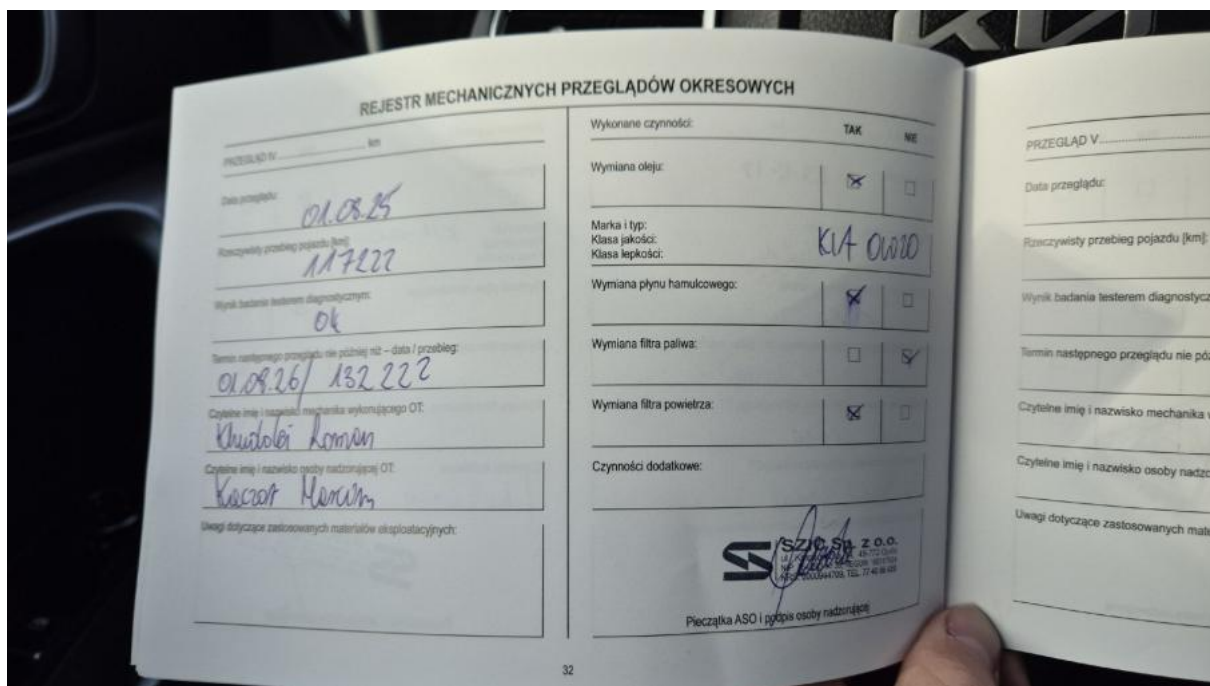 REJESTR MECHANICZNYCH PRZEGLĄDÓW OKRESOWYCH
PRZEGLĄD IV ........ km
Data przeglądu:
01.08.25
Rzeczywisty przebieg pojazdu [km]:
117222
Wynik badania testerem diagnostycznym:
Ok
Termin następnego przeglądu nie później niż – data / przebieg:
01.08.26/ 132 222
Czytelne imię i nazwisko mechanika wykonującego OT:
Khudolei Roman
Czytelne imię i nazwisko osoby nadzorującej OT:
Marcin
Uwagi dotyczące zastosowanych materiałów eksploatacyjnych:
Wykonane czynności:
TAK NIE
Wymiana oleju:
Marka i typ:
Klasa jakości:
Klasa lepkości:
KIA 0W20
Wymiana płynu hamulcowego:
Wymiana filtra paliwa:
Wymiana filtra powietrza:
Czynności dodatkowe:
SZIC Sp. z o.o.
Pieczątka ASO i podpis osoby nadzorującej
32
PRZEGLĄD V ........
Data przeglądu:
Rzeczywisty przebieg pojazdu [km]:
Wynik badania testerem diagnostycz
Termin następnego przeglądu nie póź
Czytelne imię i nazwisko mechanika w
Czytelne imię i nazwisko osoby nadzo
Uwagi dotyczące zastosowanych mate